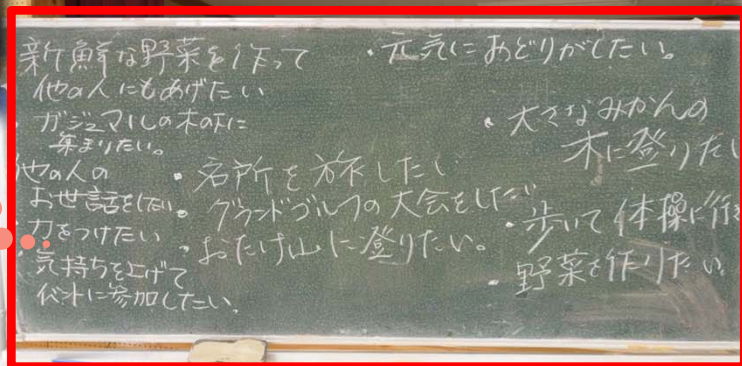 新鮮な野菜を作って
他の人にもあげたい
・ガジュマルの木の下に
集まりたい。
他の人の
お世話をしたい。
・力をつけたい
・気持ちを上げて
イベントに参加したい。
・元気におどりがしたい。
・名所を旅したい
・グランドゴルフの大会をしたい
・おたけ山に登りたい。
・大きなみかんの
木に登りたい
・歩いて体操に行き
・野菜を作りたい。